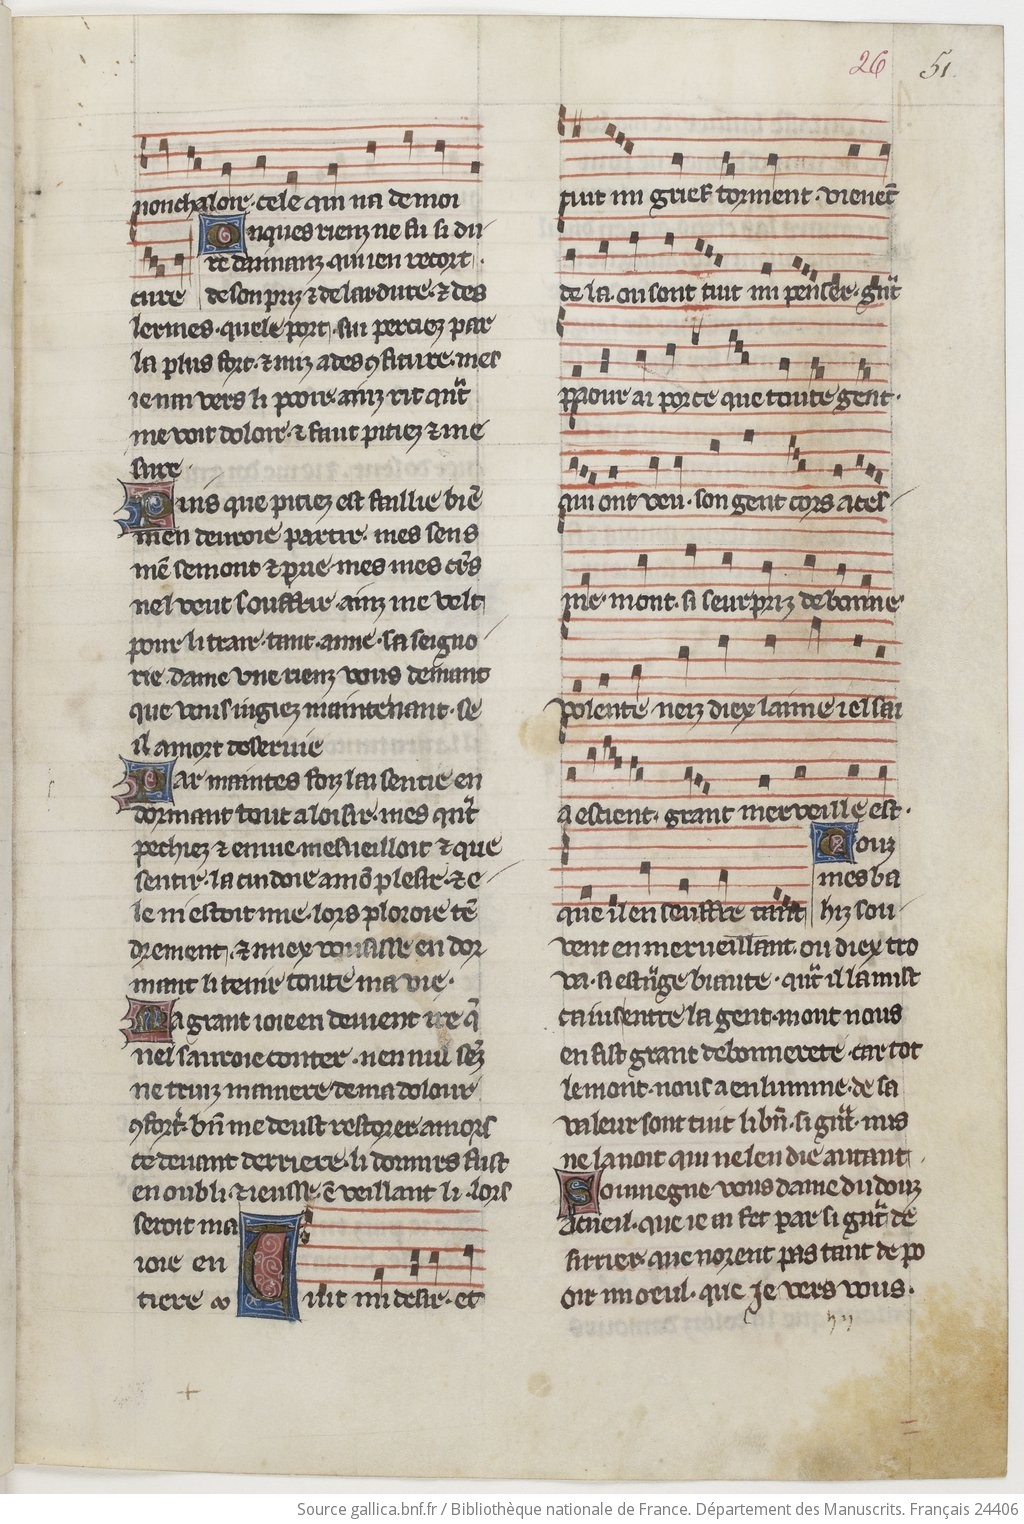 26 51.
nonchaloir. cele qui na de moi
cure
Onques rienz ne fu si du
re daimanz. qui ien recort.
de son priz ⁊ de la rdure. ⁊ des
lermes. quele port. fu perciez par
la plus fort. ⁊ miz a des ꝯfiture. mes
ie nai vers li pooir. ainz rit qn̄t
me voit doloir. ⁊ faut pitiez ⁊ me
sure
Puis que pitiez est faillie biē
men deuroie partir. mes sens
mē semont ⁊ prie. mes mes cr̄s
nel veut souffrir. ainz me velt
pour li traire. tant aime. sa seigno
rie. dame vne rienz vous demant
que vous iugiez maintenant. se
il a mort deseruie
Par maintes foiz lai sentie en
dormant tout a loisir. mes qn̄t
pechiez ⁊ enuie. mesueilloit ⁊ que
sentir. la cuidoie a mō plesir. ⁊ e
le ni estoit mie. lors ploroie tē
drement. ⁊ miex vousisse en dor
mant li tenir toute ma vie.
Ma grant ioie en deuient ire q̄
nel sauroie conter. nen nul sēz
ne truiz maniere de ma dolour
ꝯfort̄. bn̄ me deust restorer. amors
ce deuant derriere. li dormirs fust
en oubli. ⁊ ieusse. ē veillant li. lors
seroit ma
ioie en
tiere
Tuit mi desir. et
tuit mi grief torment. vienēt
de la. ou sont tuit mi penser. gn̄t
paour ai por ce que toute gent.
qui ont veu. son gent cors acel
me. mont. si seurpriz de bonne
volente neiz diex laime iel sai
a escient. grant merveille est.
que il en seuffre tant
Touz
mes ba
hiz sou
vent en merueillant. ou diex tro
va. si estr̄ge biaute. qn̄t il la mist
ca ius entre la gent. mont nous
en fist grant debonnerete. car tot
le mont. nous a enlumine. de sa
valeur sont tuit li bn̄. si gn̄t. nus
ne la uoit qui ne len die autant
Souuiegne vous dame du douz
acueil. que ie ai fet par si gn̄t de
sirrier. que norent pas tant de po
oir mi oeul. que je vers vous.
Source gallica.bnf.fr / Bibliothèque nationale de France. Département des Manuscrits. Français 24406